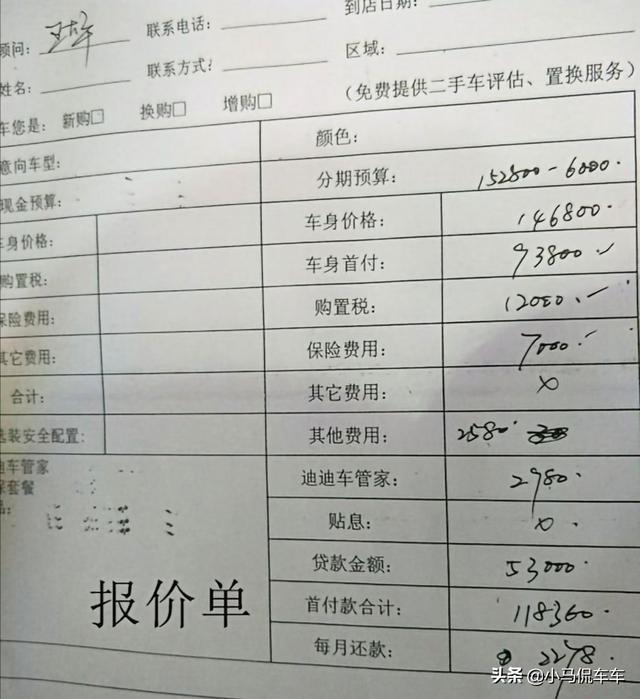 顾问： 联系电话： 到店日期：
姓名： 联系方式： 区域：
车您是： 新购□ 换购□ 增购□ （免费提供二手车评估、置换服务）
意向车型： 颜色：
现金预算： 分期预算： 152800-6000.
车身价格： 车身价格： 146800.
购置税： 车身首付： 93800
保险费用： 购置税： 12000.
其它费用： 保险费用： 7000.
合计： 其它费用： ×
选装安全配置： 其他费用： 2580.
迪车管家 迪迪车管家： 2980.
保套餐
品： 贴息： ×.
贷款金额： 53000.
报价单
首付款合计： 118360.
每月还款： 2278.
头条 @小马侃车车